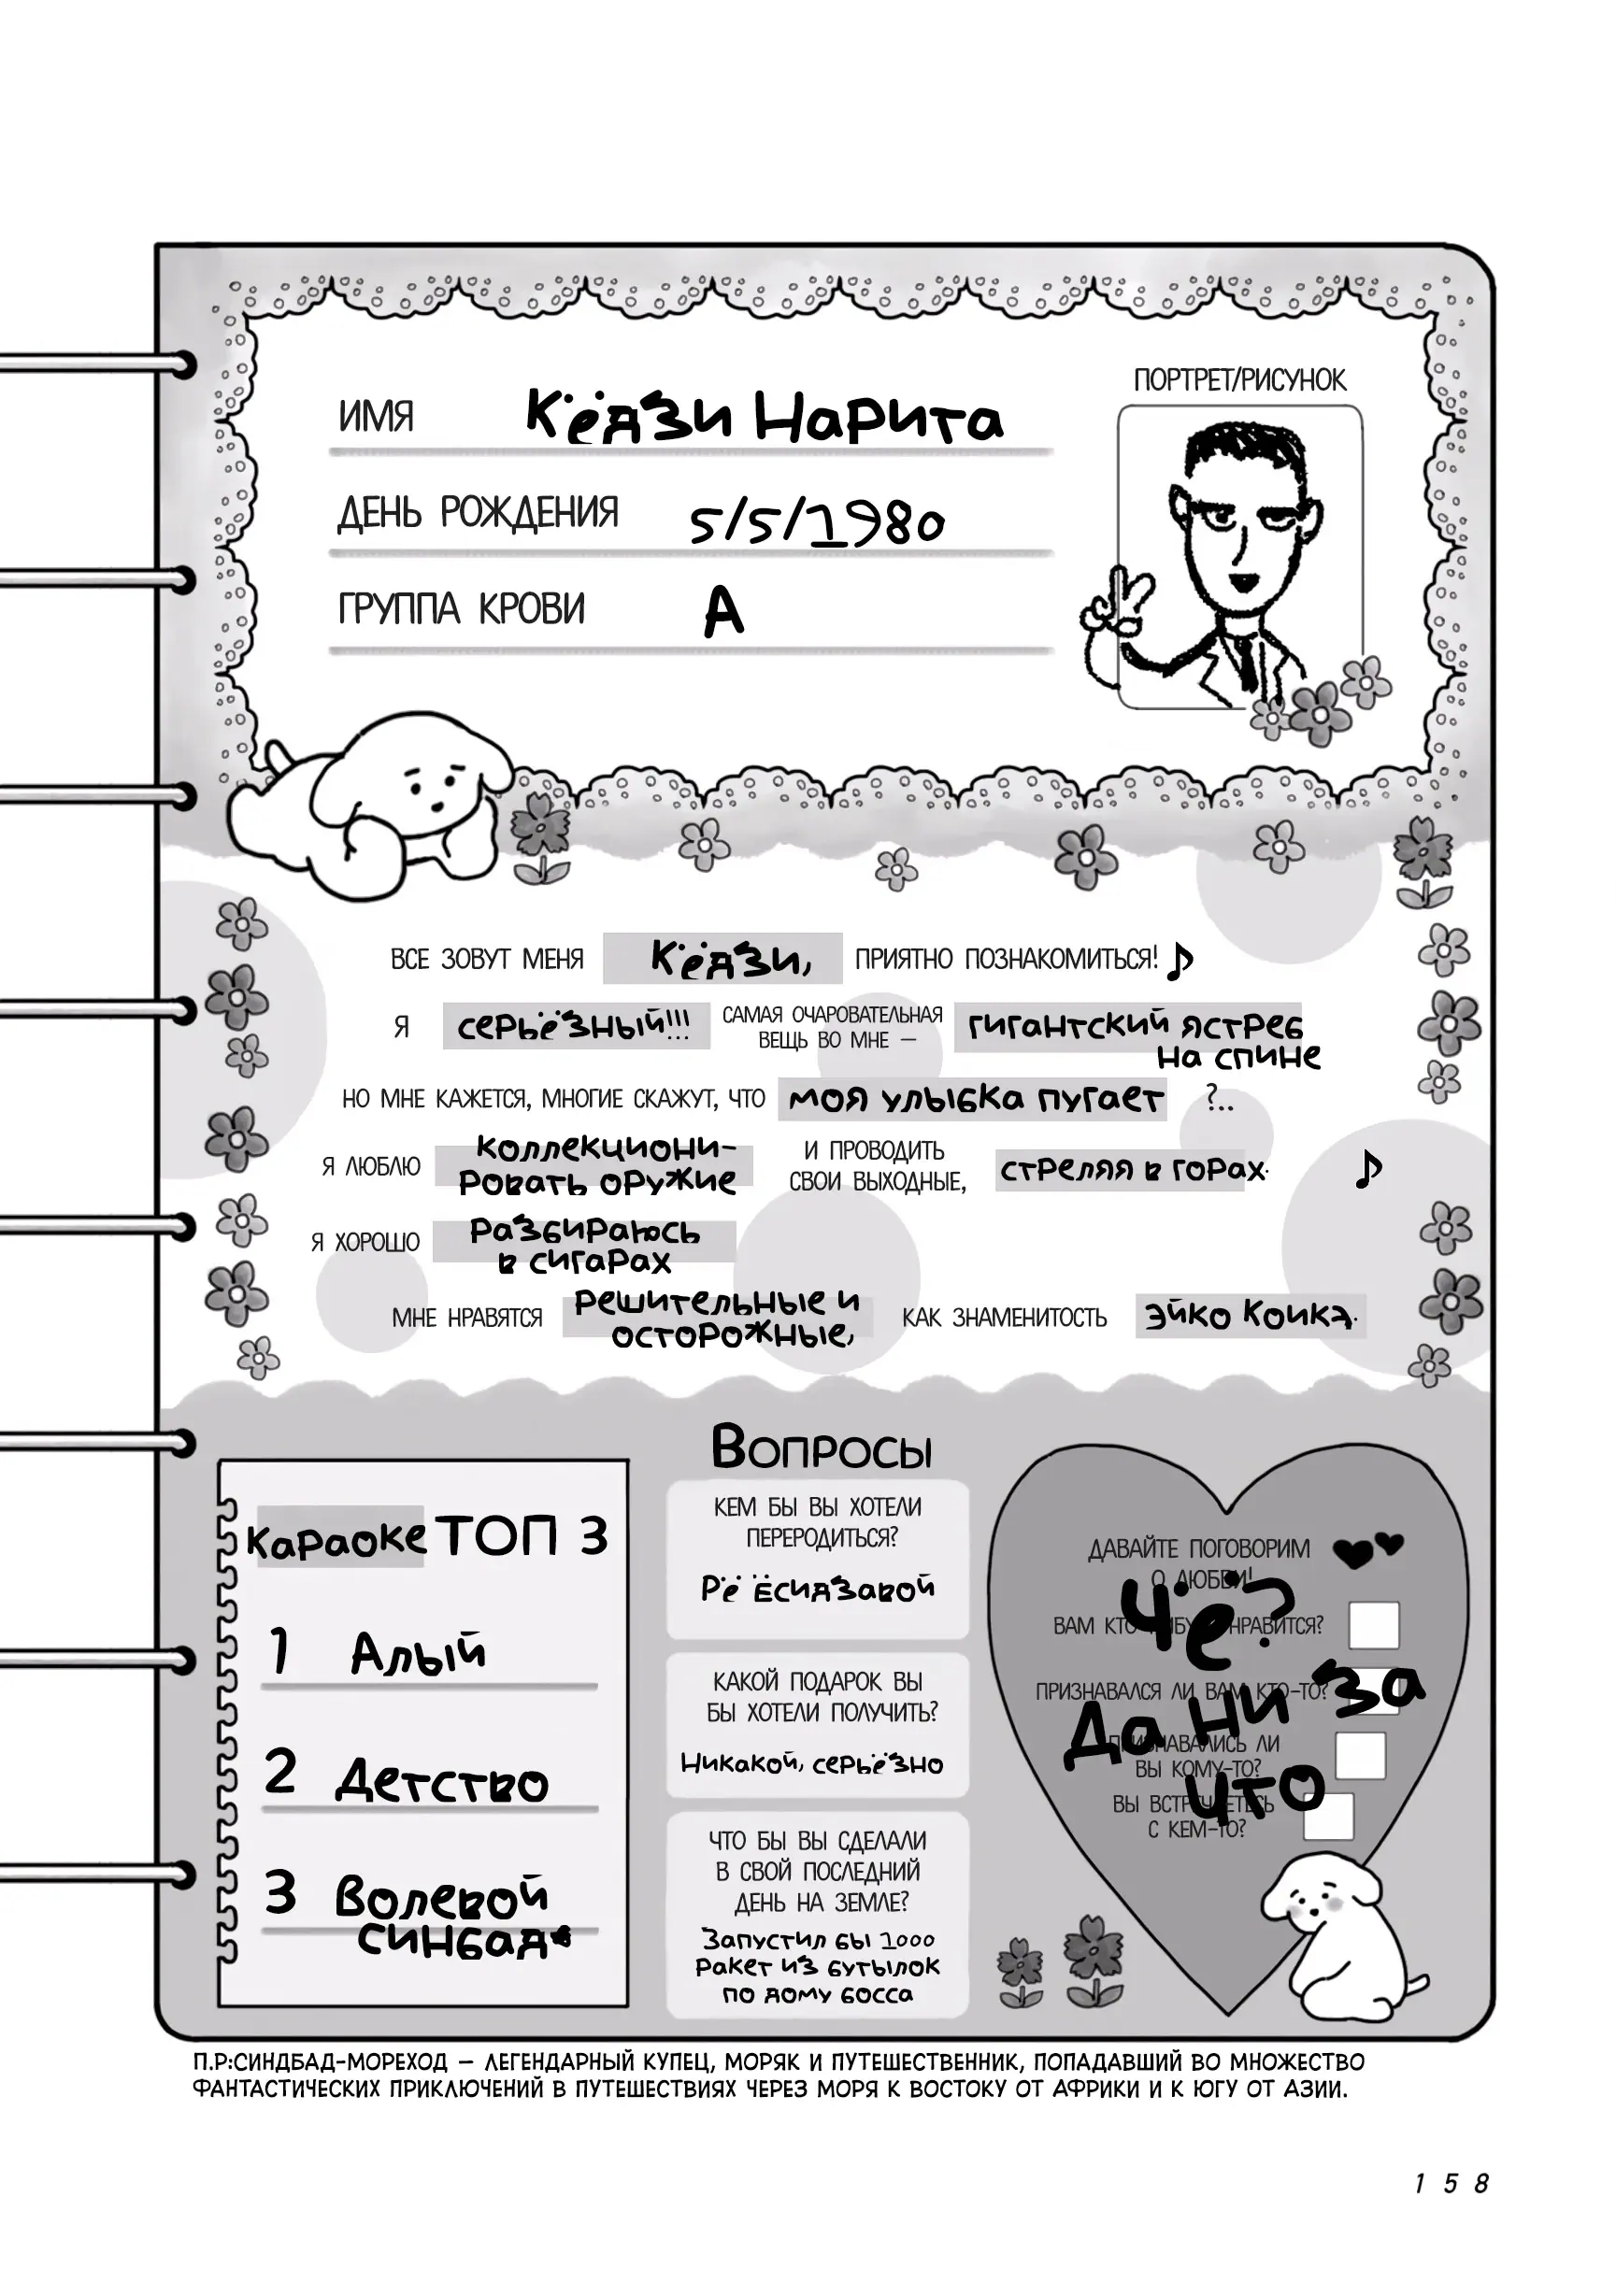 ПОРТРЕТ/РИСУНОК
ИМЯ Кёдзи Нарита
ДЕНЬ РОЖДЕНИЯ 5/5/1980
ГРУППА КРОВИ А
ВСЕ ЗОВУТ МЕНЯ Кёдзи, ПРИЯТНО ПОЗНАКОМИТЬСЯ!♪
Я серьёзный!!! САМАЯ ОЧАРОВАТЕЛЬНАЯ
ВЕЩЬ ВО МНЕ — гигантский ястреб
на спине
НО МНЕ КАЖЕТСЯ, МНОГИЕ СКАЖУТ, ЧТО моя улыбка пугает ?..
Я ЛЮБЛЮ коллекциони-
ровать оружие
И ПРОВОДИТЬ
СВОИ ВЫХОДНЫЕ, стреляя в горах. ♪
Я ХОРОШО разбираюсь
в сигарах
МНЕ НРАВЯТСЯ решительные и
осторожные,
КАК ЗНАМЕНИТОСТЬ Эйко Коикэ.
Караоке ТОП 3
1 Алый
2 Детство
3 Волевой
Синбад*
Вопросы
КЕМ БЫ ВЫ ХОТЕЛИ
ПЕРЕРОДИТЬСЯ?
Рё Ёсидзавой
КАКОЙ ПОДАРОК ВЫ
БЫ ХОТЕЛИ ПОЛУЧИТЬ?
Никакой, серьёзно
ЧТО БЫ ВЫ СДЕЛАЛИ
В СВОЙ ПОСЛЕДНИЙ
ДЕНЬ НА ЗЕМЛЕ?
Запустил бы 1000
ракет из бутылок
по дому босса
ДАВАЙТЕ ПОГОВОРИМ
О ЛЮБВИ!
ВАМ КТО-НИБУДЬ НРАВИТСЯ?
ПРИЗНАВАЛСЯ ЛИ ВАМ КТО-ТО?
ПРИЗНАВАЛИСЬ ЛИ
ВЫ КОМУ-ТО?
ВЫ ВСТРЕЧАЕТЕСЬ
С КЕМ-ТО?
Чё?
Да ни за
что
П.Р:СИНДБАД-МОРЕХОД — ЛЕГЕНДАРНЫЙ КУПЕЦ, МОРЯК И ПУТЕШЕСТВЕННИК, ПОПАДАВШИЙ ВО МНОЖЕСТВО
ФАНТАСТИЧЕСКИХ ПРИКЛЮЧЕНИЙ В ПУТЕШЕСТВИЯХ ЧЕРЕЗ МОРЯ К ВОСТОКУ ОТ АФРИКИ И К ЮГУ ОТ АЗИИ.
158